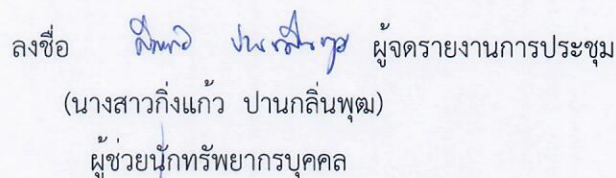 ลงชื่อ ผู้จดรายงานการประชุม
(นางสาวกิ่งแก้ว ปานกลิ่นพุฒ)
ผู้ช่วยนักทรัพยากรบุคคล